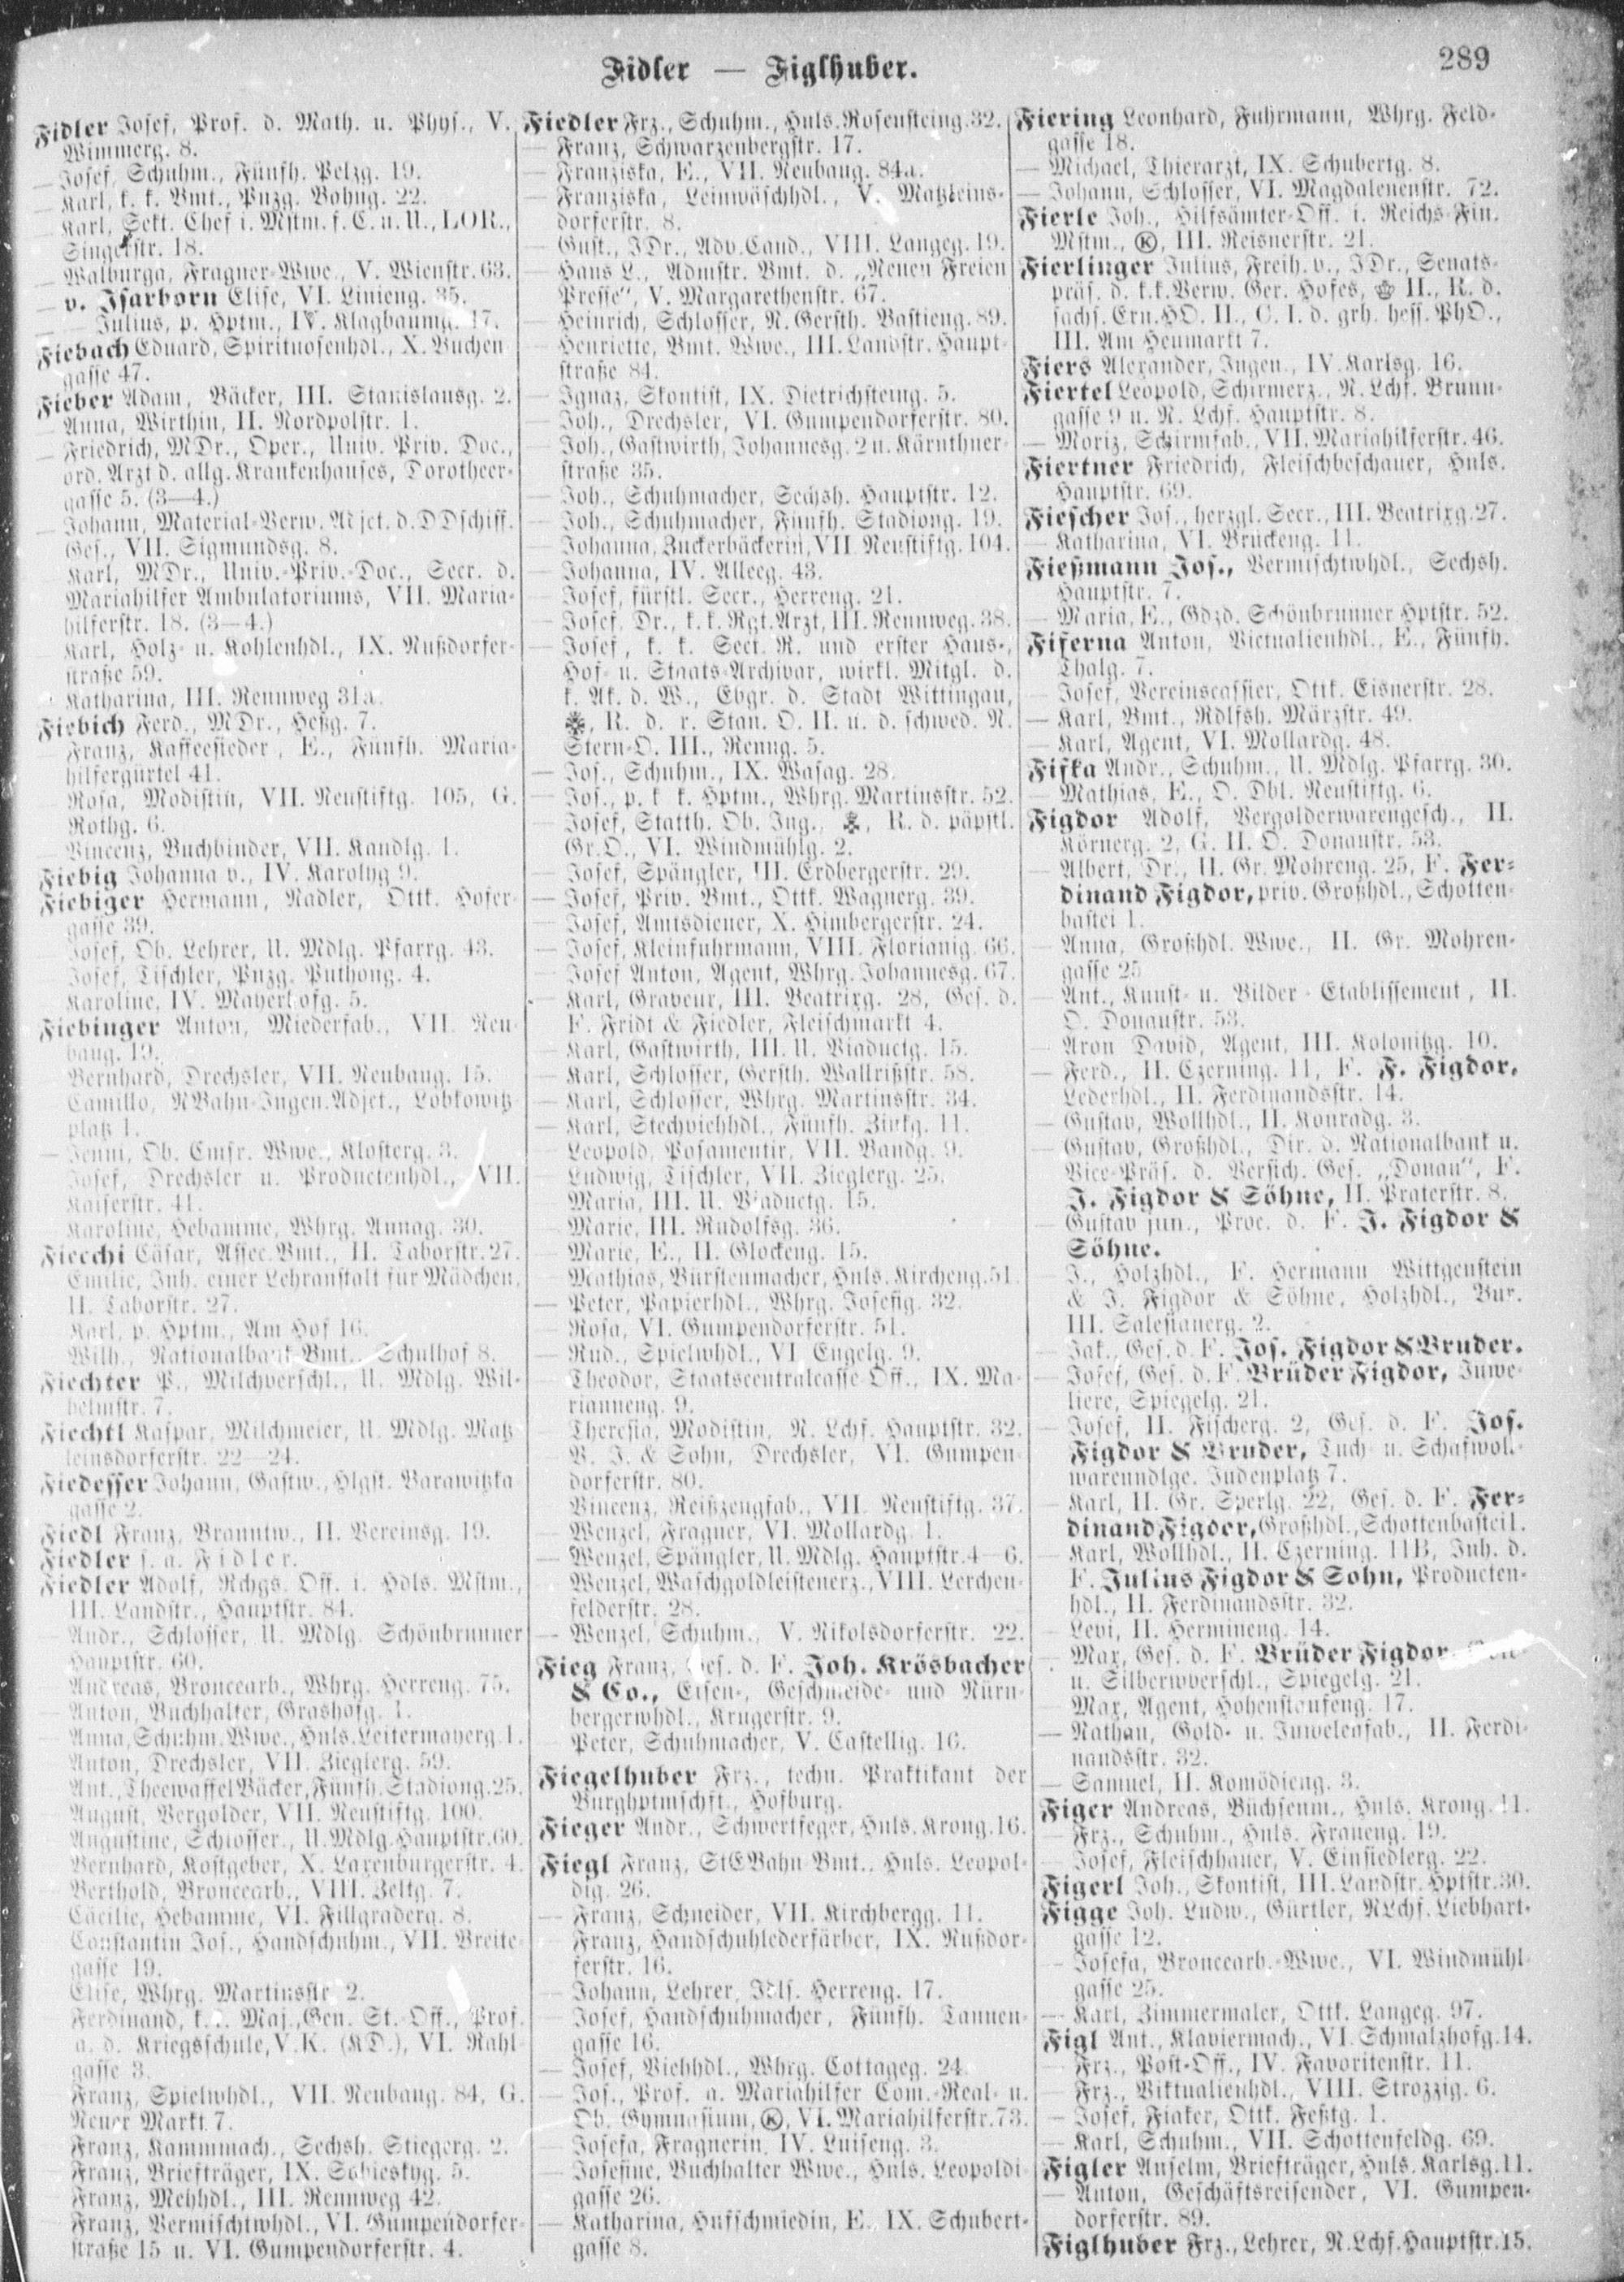 Fidler — Figlhuber.
289
Fidler Josef, Prof. d. Math. u. Phys., V.
Wimmerg. 8.
— Josef, Schuhm., Fünfh. Pelzg. 19.
— Karl, k. k. Bmt., Pnzg. Bahng. 22.
— Karl, Sekt. Chef i. Mstm. f. C. u. U., LOR.,
Singerstr. 18.
— Walburga, Fragner-Wwe., V. Wienstr. 63.
— v. Isarborn Elise, VI. Linieng. 35.
— — Julius, p. Hptm., IV. Klagbaumg. 17.
Fiebach Eduard, Spirituosenhdl., X. Buchen
gasse 47.
Fieber Adam, Bäcker, III. Stanislausg. 2.
— Anna, Wirthin, II. Nordpolstr. 1.
— Friedrich, MDr., Oper., Univ. Priv. Doc.,
ord. Arzt d. allg. Krankenhauses, Dorotheer-
gasse 5. (3—4.)
— Johann, Material-Verw. Adjct. d. DDschiff.
Ges., VII. Sigmundsg. 8.
Karl, MDr., Univ.-Priv.-Doc., Secr. d.
Mariahilfer Ambulatoriums, VII. Maria-
hilferstr. 18. (3—4.)
Karl, Holz- u. Kohlenhdl., IX. Nußdorfer-
straße 59.
Katharina, III. Rennweg 31a.
Fiebich Ferd., MDr., Heßg. 7.
Franz, Kaffeesieder, E., Fünfh. Maria-
hilfergürtel 41.
— Rosa, Modistin, VII. Neustiftg. 105, G.
Rothg. 6.
— Vincenz, Buchbinder, VII. Kandlg. 1.
Fiebig Johanna v., IV. Karolyg 9.
Fiebiger Hermann, Nadler, Ottk. Hofer-
gasse 39.
Josef, Ob. Lehrer, U. Mdlg. Pfarrg. 43.
Josef, Tischler, Pnzg. Puthong. 4.
Karoline, IV. Mayerhofg. 5.
Fiebinger Anton, Miederfab., VII. Neu-
baug. 19.
Bernhard, Drechsler, VII. Neubaug. 15.
Camillo, NBahn-Ingen. Adjct., Lobkowitz-
platz 1.
— Jenni, Ob. Cmsr. Wwe., Klosterg. 3.
Josef, Drechsler u. Productenhdl., VII.
Kaiserstr. 41.
Karoline, Hebamme, Whrg. Annag. 30.
Fiecchi Cäsar, Assec. Bmt., II. Taborstr. 27.
Emilie, Inh. einer Lehranstalt für Mädchen,
II. Taborstr. 27.
Karl, p. Hptm., Am Hof 16.
Wilh., Nationalbank-Bmt., Schulhof 8.
Fiechter P., Milchverschl., U. Mdlg. Wil-
helmstr. 7.
Fiechtl Kaspar, Milchmeier, U. Mdlg. Matz-
leinsdorferstr. 22—24.
Fiedesser Johann, Gastw., Hlgst. Barawitzka-
gasse 2.
Fiedl Franz, Branntw., II. Vereinsg. 19.
Fiedler s. a. Fidler.
Fiedler Adolf, Rchgs. Off. i. Hdls. Mstm.,
III. Landstr., Hauptstr. 84.
— Andr., Schlosser, U. Mdlg. Schönbrunner
Hauptstr. 60.
Andreas, Broncearb., Whrg. Herreng. 75.
— Anton, Buchhalter, Grashofg. 1.
Anna, Schuhm. Wwe., Huls. Leitermayerg. 1.
Anton, Drechsler, VII. Zieglerg. 59.
Ant., Theewaffel Bäcker, Fünfh. Stadiong. 25.
August, Vergolder, VII. Neustiftg. 100.
Augustine, Schlosser., U. Mdlg. Hauptstr. 60.
Bernhard, Kostgeber, X. Laxenburgerstr. 4.
Berthold, Broncearb., VIII. Zeltg. 7.
Cäcilie, Hebamme, VI. Fillgraderg. 8.
Constantin Jos., Handschuhm., VII. Breite-
gasse 19.
Elise, Whrg. Martinsstr. 2.
Ferdinand, k. . Maj., Gen. St. Off., Prof.
a. d. Kriegsschule, V. K. (KD.), VI. Rahl-
gasse 3.
Franz, Spielwhdl., VII. Neubaug. 84, G.
Neuer Markt 7.
Franz, Kammmach., Sechsh. Stiegerg. 2.
Franz, Briefträger, IX. Sobieskyg. 5.
Franz, Mehhdl., III. Rennweg 42.
Franz, Vermischtwhdl., VI. Gumpendorfer-
straße 15 u. VI. Gumpendorferstr. 4.
Fiedler Frz., Schuhm., Huls. Rosensteing. 32.
— Franz, Schwarzenbergstr. 17.
— Franziska, E., VII. Neubaug. 84a.
— Franziska, Leinwäschhdl., V. Matzleins-
dorferstr. 8.
— Gust., JDr., Adv. Cand., VIII. Langeg. 19.
— Hans L., Admstr. Bmt. d. „Neuen Freien
Presse“, V. Margarethenstr. 67.
— Heinrich, Schlosser, N. Gersth. Bastieng. 89.
— Henriette, Bmt. Wwe., III. Landstr. Haupt-
straße 84.
— Ignaz, Skontist, IX. Dietrichsteing. 5.
— Joh., Drechsler, VI. Gumpendorferstr. 80.
— Joh., Gastwirth, Johannesg. 2 u. Kärnthner-
straße 35.
— Joh., Schuhmacher, Sechsh. Hauptstr. 12.
— Joh., Schuhmacher, Fünfh. Stadiong. 19.
— Johanna, Zuckerbäckerin, VII. Neustiftg. 104.
— Johanna, IV. Alleeg. 43.
— Josef, fürstl. Secr., Herreng. 21.
— Josef, Dr., k. k. Rgt. Arzt, III. Rennweg. 38.
— Josef, k. k. Sect. R. und erster Haus-,
Hof- u. Staats-Archivar, wirkl. Mitgl. d.
k. Ak. d. W., Ebgr. d. Stadt Wittingau,
R. d. r. Stan. O. II. u. d. schwed. N.
Stern-O. III., Renng. 5.
— Jos., Schuhm., IX. Wasag. 28.
— Jos., p. k. k. Hptm., Whrg. Martinsstr. 52.
— Josef, Statth. Ob. Ing., R. d. päpstl.
Gr. O., VI. Windmühlg. 2.
— Josef, Spängler, III. Erdbergerstr. 29.
— Josef, Priv. Bmt., Ottk. Wagnerg. 39.
— Josef, Amtsdiener, X. Himbergerstr. 24.
— Josef, Kleinfuhrmann, VIII. Florianig. 66.
— Josef Anton, Agent, Whrg. Johannesg. 67.
— Karl, Graveur, III. Beatrixg. 28, Ges. d.
F. Fridt & Fiedler, Fleischmarkt 4.
— Karl, Gastwirth, III. U. Viaductg. 15.
— Karl, Schlosser, Gersth. Wallrißstr. 58.
— Karl, Schlosser, Whrg. Martinsstr. 34.
— Karl, Stechviehhdl., Fünfh. Zinkg. 11.
— Leopold, Posamentir, VII. Bandg. 9.
— Ludwig, Tischler, VII. Zieglerg. 25.
— Maria, III. U. Viaductg. 15.
— Marie, III. Rudolfsg. 36.
— Marie, E., II. Glockeng. 15.
— Mathias, Bürstenmacher, Huls. Kircheng. 51.
— Peter, Papierhdl., Whrg. Josefig. 32.
— Rosa, VI. Gumpendorferstr. 51.
— Rud., Spielwhdl., VI. Engelg. 9.
— Theodor, Staatscentralcasse-Off., IX. Ma-
rianneng. 9.
Theresia, Modistin, N. Lchf. Hauptstr. 32.
— V. J. & Sohn, Drechsler, VI. Gumpen-
dorferstr. 80.
Vincenz, Reißzeugfab., VII. Neustiftg. 37.
— Wenzel, Fragner, VI. Mollardg. 1.
— Wenzel, Spängler, U. Mdlg. Hauptstr. 4—6.
Wenzel, Waschgoldleistenerz., VIII. Lerchen-
felderstr. 28.
— Wenzel, Schuhm., V. Nikolsdorferstr. 22.
Fieg Franz, Ges. d. F. Joh. Krösbacher
& Co., Eisen-, Geschmeide- und Nürn-
bergerwhdl., Krugerstr. 9.
Peter, Schuhmacher, V. Castellig. 16.
Fiegelhuber Frz., techn. Praktikant der
Burghptmschft., Hofburg.
Fieger Andr., Schwertfeger, Huls. Krong. 16.
Fiegl Franz, StEBahn-Bmt., Huls. Leopol-
dig. 26.
— Franz, Schneider, VII. Kirchbergg. 11.
Franz, Handschuhlederfärber, IX. Nußdor-
ferstr. 16.
— Johann, Lehrer, Herreng. 17.
— Josef, Handschuhmacher, Fünfh. Tannen-
gasse 16.
— Josef, Viehhdl., Whrg. Cottageg. 24.
— Jos., Prof. a. Mariahilfer Com.-Real- u.
Ob. Gymnasium, Ⓚ, VI. Mariahilferstr. 73.
— Josefa, Fragnerin, IV. Luiseng. 3.
— Josefine, Buchhalter Wwe., Huls. Leopoldi-
gasse 26.
— Katharina, Hufschmiedin, E., IX. Schubert-
gasse 8.
Fiering Leonhard, Fuhrmann, Whrg. Feld-
gasse 18.
— Michael, Thierarzt, IX. Schubertg. 8.
— Johann, Schlosser, VI. Magdalenenstr. 72.
Fierle Joh., Hilfsämter-Off. i. Reichs-Fin.
Mstm., Ⓚ, III. Reisnerstr. 21.
Fierlinger Julius, Freih. v., JDr., Senats-
präs. d. k. k. Verw. Ger. Hofes, II., R. d.
sächs. Ern. HO. II., C. I. d. grh. hess. PhO.,
III. Am Heumarkt 7.
Fiers Alexander, Ingen., IV. Karlsg. 16.
Fiertel Leopold, Schirmerz., N. Lchf. Brunn-
gasse 9 u. N. Lchf. Hauptstr. 8.
— Moriz, Schirmfab., VII. Mariahilferstr. 46.
Fiertner Friedrich, Fleischbeschauer, Huls.
Hauptstr. 69.
Fiescher Jos., herzgl. Secr., III. Beatrixg. 27.
— Katharina, VI. Brückeng. 11.
Fießmann Jos., Vermischtwhdl., Sechsh.
Hauptstr. 7.
— Maria, E., Gdzd. Schönbrunner Hptstr. 52.
Fiferna Anton, Victualienhdl., E., Fünfh.
Thalg. 7.
— Josef, Vereinscassier, Ottk. Eisnerstr. 28.
— Karl, Bmt., Rdlfsh. Märzstr. 49.
— Karl, Agent, VI. Mollardg. 48.
Fifka Andr., Schuhm., U. Mdlg. Pfarrg. 30.
— Mathias, E., O. Dbl. Neustiftg. 6.
Figdor Adolf, Vergolderwarengesch., II.
Körnerg. 2, G. II. O. Donaustr. 53.
— Albert, Dr., II. Gr. Mohreng. 25, F. Fer-
dinand Figdor, priv. Großhdl., Schotten-
bastei 1.
— Anna, Großhdl. Wwe., II. Gr. Mohren-
gasse 25
— Ant., Kunst- u. Bilder-Etablissement, II.
O. Donaustr. 53.
— Aron David, Agent, III. Kolonitzg. 10.
— Ferd., II. Czerning. 11, F. F. Figdor,
Lederhdl., II. Ferdinandsstr. 14.
— Gustav, Wollhdl., II. Konradg. 3.
— Gustav, Großhdl., Dir. d. Nationalbank u.
Vice-Präs. d. Versich. Ges. „Donau“, F.
J. Figdor & Söhne, II. Praterstr. 8.
— Gustav jun., Proc. d. F. J. Figdor &
Söhne.
J., Holzhdl., F. Hermann Wittgenstein
& J. Figdor & Söhne, Holzhdl., Bur.
III. Salesianerg. 2.
— Jak., Ges. d. F. Jos. Figdor & Bruder.
— Josef, Ges. d. F. Brüder Figdor, Juwe-
liere, Spiegelg. 21.
— Josef, II. Fischerg. 2, Ges. d. F. Jos.
Figdor & Bruder, Tuch- u. Schafwoll-
warenndlge. Judenplatz 7.
— Karl, II. Gr. Sperlg. 22, Ges. d. F. Fer-
dinand Figdor, Großhdl., Schottenbastei 1.
— Karl, Wollhdl., II. Czerning. 11B, Inh. d.
F. Julius Figdor & Sohn, Producten-
hdl., II. Ferdinandsstr. 32.
— Levi, II. Hermineng. 14.
Max, Ges. d. F. Brüder Figdor,
u. Silberwverschl., Spiegelg. 21.
Max, Agent, Hohenstaufeng. 17.
— Nathan, Gold- u. Juwelenfab., II. Ferdi-
nandsstr. 32.
— Samuel, II. Komödieng. 3.
Figer Andreas, Büchsenm., Huls. Krong. 11.
— Frz., Schuhm., Huls. Fraueng. 19.
— Josef, Fleischhauer, V. Einsiedlerg. 22.
Figerl Joh., Skontist, III. Landstr. Hptstr. 30.
Figge Joh. Ludw., Gürtler, NLchf. Liebhart-
gasse 12.
— Josefa, Broncearb.-Wwe., VI. Windmühl-
gasse 25.
— Karl, Zimmermaler, Ottk. Langeg. 97.
Figl Ant., Klaviermach., VI. Schmalzhofg. 14.
— Frz., Post-Off., IV. Favoritenstr. 11.
— Frz., Viktualienhdl., VIII. Strozzig. 6.
— Josef, Fiaker, Ottk. Feßtg. 1.
— Karl, Schuhm., VII. Schottenfeldg. 69.
Figler Anselm, Briefträger, Huls. Karlsg. 11.
— Anton, Geschäftsreisender, VI. Gumpen-
dorferstr. 89.
Figlhuber Frz., Lehrer, N. Lchf. Hauptstr. 15.